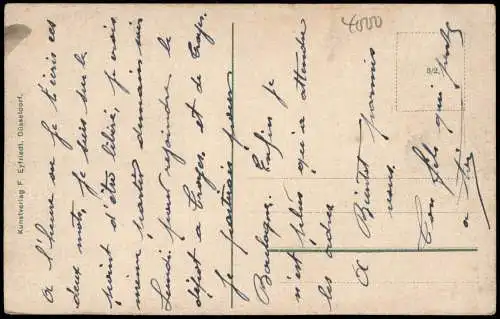 4000
8/2.
Kunstverlag F. Eyfriedt, Düsseldorf.
A l'heure ou je t'écris ces
deux mots, je suis sur le
point d'être libéré, je vais
même partir demain
Lundi pour rejoindre le
dépôt a Troyes et de Troyes
je partirais pour
Boulogne. Enfin je
n'est plus qu'a attendre
les ordres
A Bientôt parmis
vous.
Ton fils qui